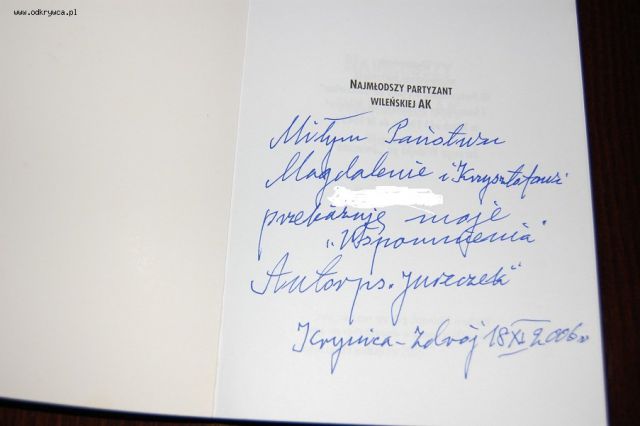 www.odkrywca.pl
NAJMŁODSZY PARTYZANT
WILEŃSKIEJ AK
Miłym Państwu
Magdalenie i Krzysztofowi
przekazuję moje
„Wspomnienia"
Autor ps. „Jureczek"
Krynica-Zdrój 18 XI 2006r